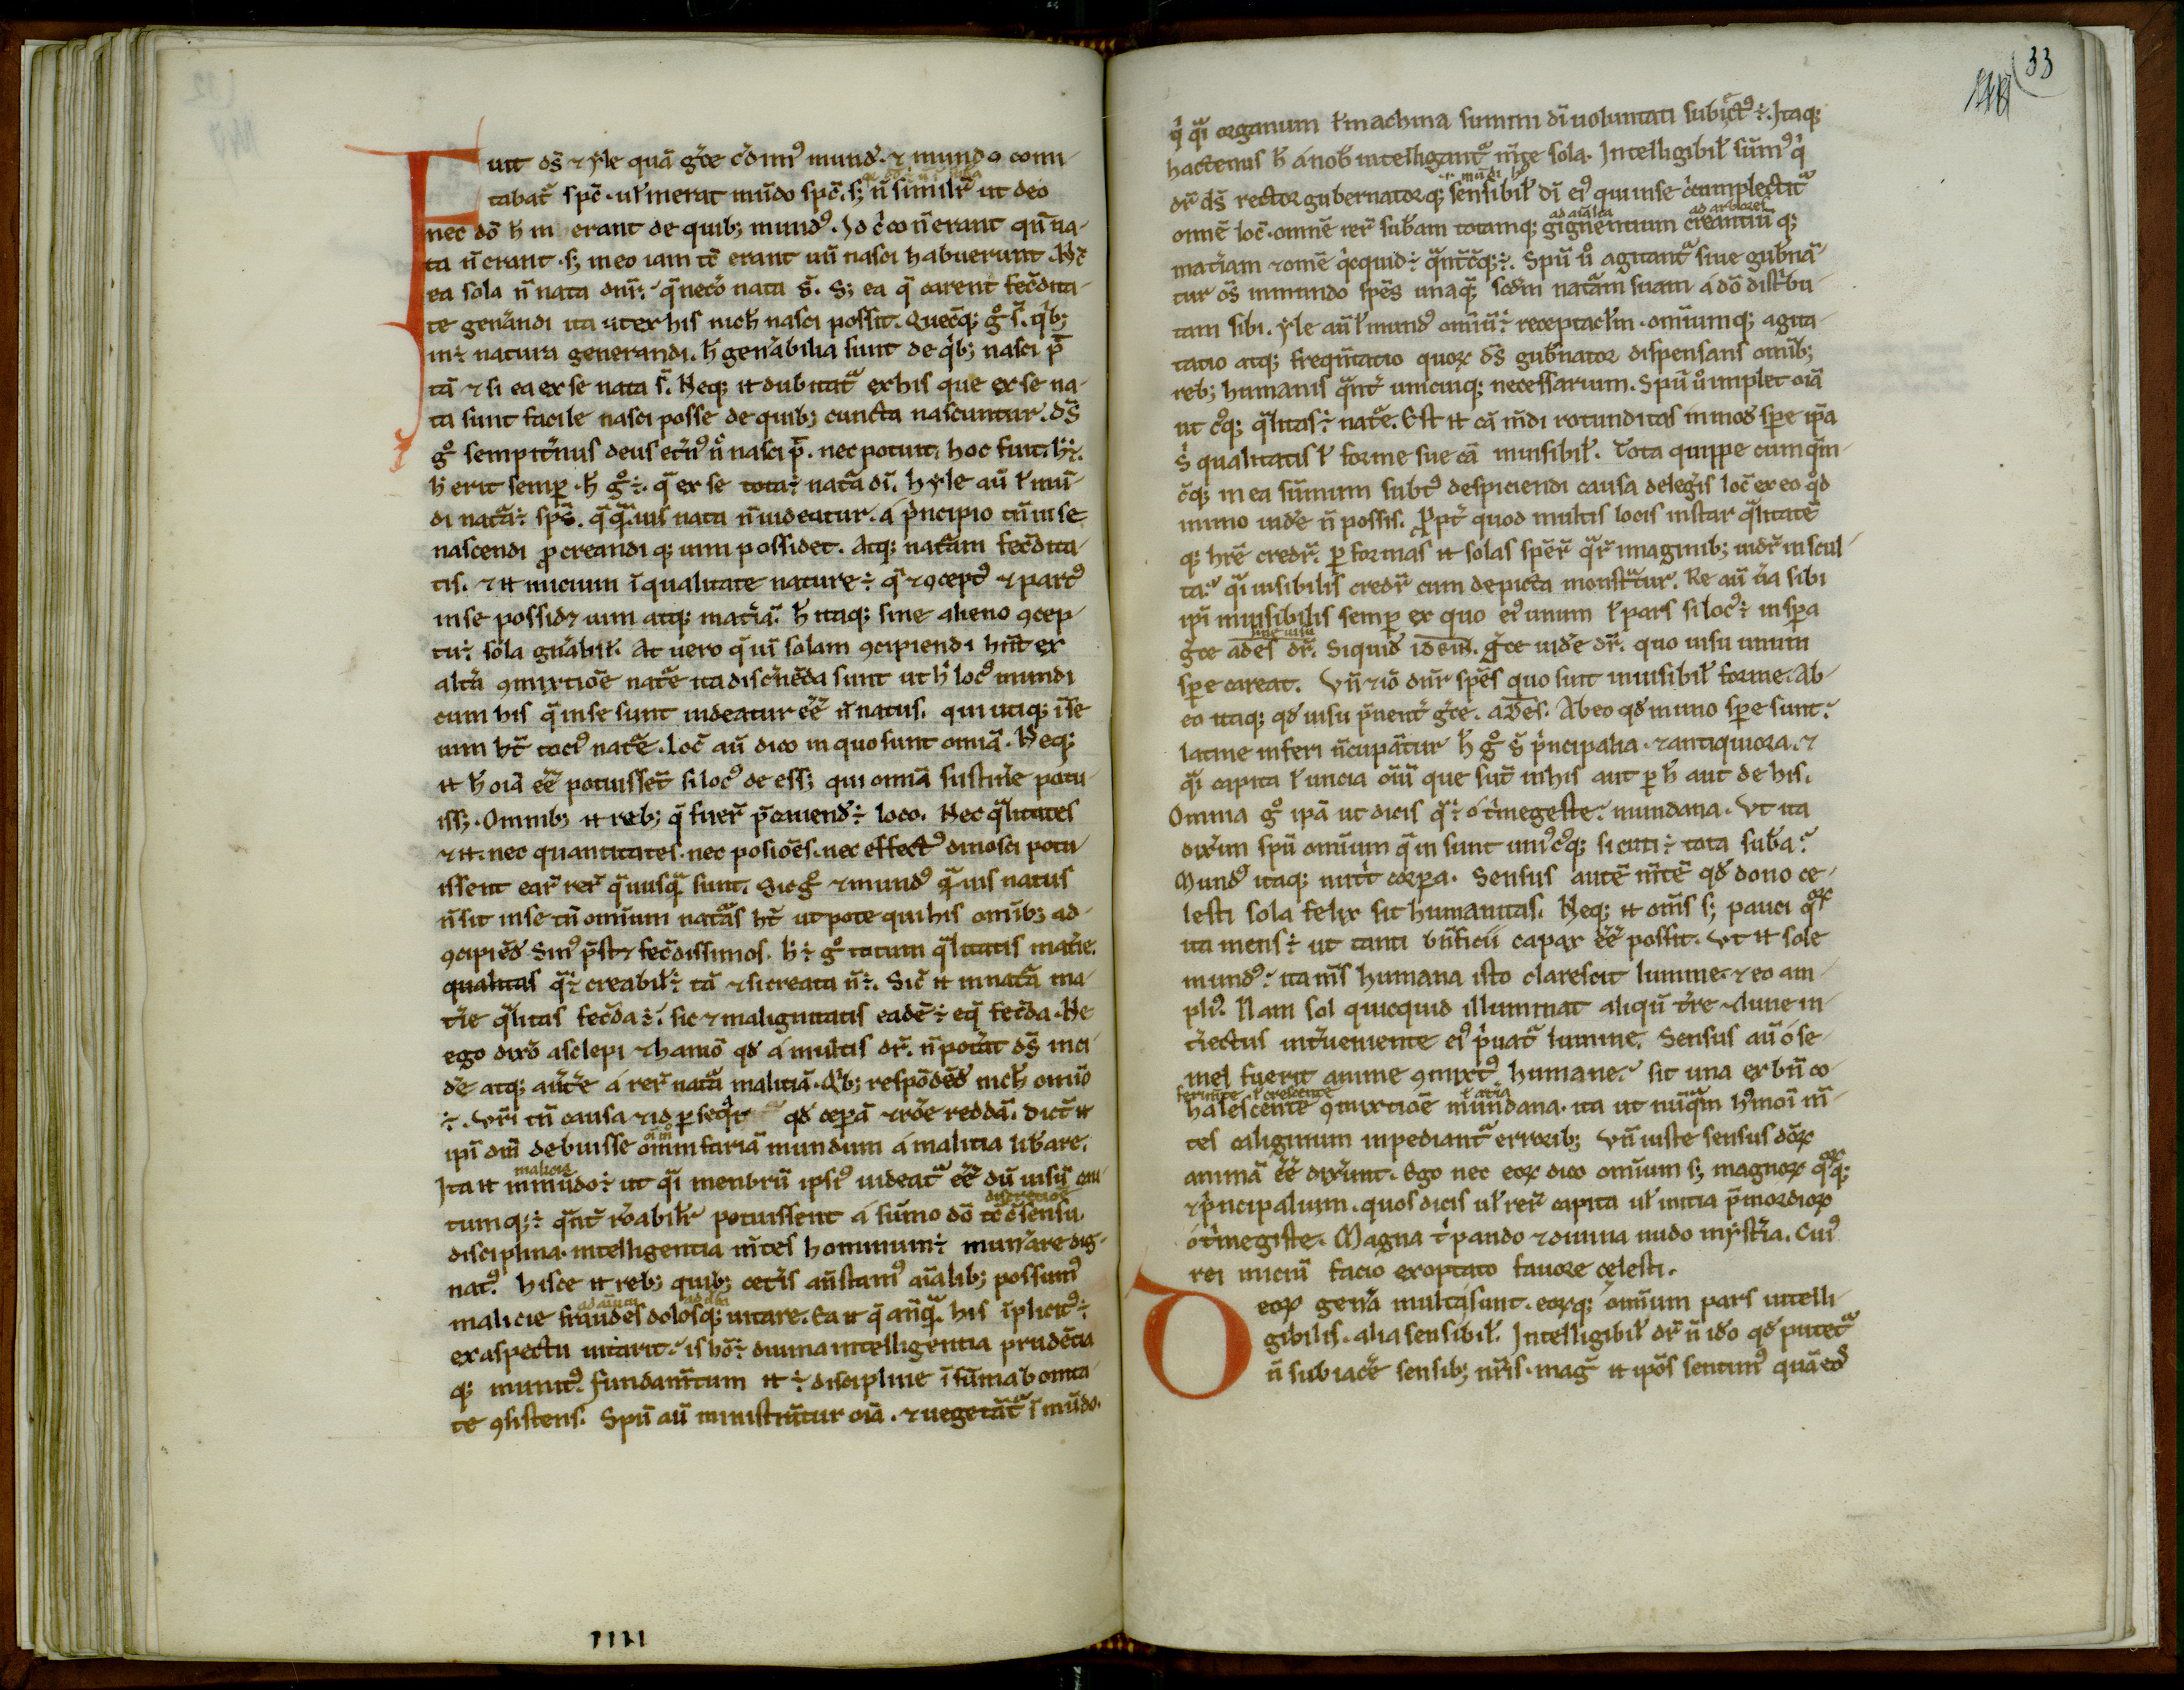 Fuit ds̄ & yle quā gr̄ce c̄dim⁹ mund⁹. & mundo comi-
tabat᷑ spc̄. ul̄ inerat mūdo spc̄. s; n̄ similit̄ ut deo
nec dō h̄ in erant de quib; mund⁹. Idc̄co n̄ erant qn̄ na-
ta n̄ erant. s; in eo iam tc̄ erant un̄ nasci habuerunt. Nc̄
ea sola n̄ nata dnr̄. q̄ necdō nata s̄. S; ea q̄ carent fec̄dita-
te gen̄andi ita ut ex his nich̄ nasci possit. Quec̄q; g° s̄. q'b;
in ÷ natura generandi. h̄ gen̄abilia sunt de q'b; nasci p̄
tā & si ea ex se nata s̄. Neq; n̄ dubitat᷑ ex his que ex se na-
ta sunt facile nasci posse de quib; cuncta nascuntur. ds̄
g° sempit̄nus deus et̄n⁹ n̄ nasci p̄. nec potuit. hoc fuit. h̄ ÷.
h̄ erit semp̱. h̄ g° ÷. q̄ ex se tota ÷ nat᷑a dī. hyle aū ł mū-
di nat᷑a ÷ spc̄. q̄q̄uis nata n̄ uideatur. á p'ncipio tn̄ in se
nascendi ꝓcreandi q; uim possidet. Atq; nat᷑am fec̄dita-
tis. & n̄ inicium ī qualitate nature ÷ q̄ & ꝯcept⁹ & part⁹
in se possid& uim atq; mat̄iā. h̄ itaq; sine alieno ꝯcep-
tu ÷ sola gn̄abil̄. At uero q̄ uī solam ꝯcipiendi hn̄t ex
alt̄i ꝯmixtiōe nat᷑e ita discn̄ēda sunt ut h̄ loc⁹ mundi
cum his q̄ in se sunt uideatur ēē n̄ natus. qui utiq; ī se
uim ht̄ toci⁹ nat᷑e. Loc̄ aū dico in quo sunt omiā. Neq;
n̄ h̄ oiā ēē potuisset si loc⁹ deess; qui omiā sustin̄e potu-
iss;. Omnib; n̄ reb; q̄ fuer̄ p̄cauend⁹ ÷ loco. Nec q̄litates
& n̄. nec quantitates. nec posiōes. nec effect⁹ dinosci potu
issent ear̄ rer̄ q̄ nusq̄ sunt. Sic g° & mund⁹ q̄uis natus
n̄ sit in se tn̄ omīum nat᷑as ht̄ ut pote qui his omīb; ad
ꝯcipiēd⁹ sin⁹ p̄st& fec̄dissimos. h̄ ÷ g° totum q̄litatis mat̄ie.
qualitas q̄ ÷ creabil̄ ÷ tā & si creata n̄ ÷. Sic̄ n̄ in nat᷑a ma-
t̄ie q̄litas fec̄da ÷. sic & malignitatis eadē ÷ eq̄ fec̄da. Ne
ego dixō asclepi & hamō qd̄ á multis dr̄. n̄ pot̄at ds̄ inci-
de atq; aūt̄e á rer̄ nat᷑a maliciā. Q'b; respōdēd⁹ nich̄ omīo
÷. Vr̄i tn̄ causa & id p̱seq̄r qd̄ cep̱ā & rōe reddā. Dic̄t n̄
ipī dm̄ debuisse omnifariā mundum á malitia lib̄are.
malicia
Ita n̄ in mūdo ÷ ut q̄i menbrū ipsi⁹ uideat᷑ ēē
discretiōe
tumq; ÷ q̄nt᷑ rōabilit̄ potuissent á sūmo dō tc̄ c̄ sensu
disciplina. intelligentia mt̄es hominum ÷ mun̄are dig-
nat⁹. Hisce n̄ reb; quib; cet̄is an̄stam⁹ aīalib; possum⁹
malicie fraudes dolosq; uitare. Ea n̄ q̄ anq̄ his īplicit⁹ ÷
ex aspectu uitarit. is hō ÷ diuina intelligentia prudētia
q; munit⁹. fundam̄tum n̄ ÷ discipline ī sūma bonita-
te ꝯsistens. Spū aū ministrāntur oiā. & uegetāt᷑ ī mūdo.
IIII
33
q' q̄i organum ł machina summi dī uoluntati subiect⁹ ÷. Itaq;
hactenus h̄ á nob̄ intelligant᷑ mt̄e sola. Intelligibil̄ sūm⁹ q'
.i. mūdi
dr̄ ds̄ rector gubernatorq; sensibil̄ dī ei⁹ qui in se c̄cumplectit᷑
ad aīalia ad arbores
omnē loc̄. omnē rer̄ sub̄am totamq; gignentium creantiū q;
mat̄iam & omē q'cquid ÷ q̄ntc̄q; ÷. Spū u° agitant᷑ siue gub̄nā-
tur oēs in mundo spēs unaq̄q; scdm nat᷑am suam á dō dist̄bu-
tam sibi. yle aū ł mund⁹ omīū ÷ receptacl̄m. omīumq; agita-
tatio atq; freqn̄tatio quoꝝ ds̄ gub̄nator dispensans omīb;
reb; humanis q̄nt᷑ unicuiq; necessarium. Spū u° implet oiā
ut c⁹q; q̄litas ÷ nat᷑e. Est n̄ cā m̄di rotunditas in mod⁹ sp̱e ip̄a
s' qualitatis ł forme sue cā inuisibil̄. Tota quippe cum q̄m-
c̄q; in ea sūmum subt⁹ despiciendi causa deleḡis loc̄ ex eo qd̄
in imo uid̄e n̄ possis. Ꝓpt̄ quod multis locis instar q̄litatē
q; hr̄e credr̄. p̱ formas n̄ solas spēr̄ q̄r̄ imaginib; uidr̄ inscul-
ta. q̄i uisibilis credr̄ cum depicta monst᷑tur. Re aū u̅a sibi
ipī inuisibilis semp̱ ex quo ei⁹ unum ł pars si loc⁹ ÷ in sp̱a
sine uisu
gr̄ce ades dr̄. Siquid⁹ ideiN. gr̄ce uid̄e dr̄. quo uisu unum
sp̱e careat. Vn̄ & iō dnr̄ spēs quo sint inuisibil̄ forme. Ab-
eo itaq; qd̄ uisu p̄uent̄ gr̄ce. ades. Ab eo qd̄ in uno sp̱e sunt.
latine inferi nc̄upāntur h̄ g° s̄ p'ncipalia. & antiquiora. &
q̄i capita ł inicia oīū que sūt in his aut p̱ h̄ aut de his.
Omnia g° ip̄a ut dicis q̄ ÷ ó t̄megeste. mundana. Vt ita
dix̄im spū omīum q̄ in sunt uni⁹c⁹q; sicuti ÷ tota sub̄a.
Mund⁹ itaq; nut̄t corp̱a. Sensus autē mt̄ē qd̄ dono ce-
lesti sola felix sit humanitas. Neq; n̄ omēs s; pauci qꝝ
ita mens ÷ ut tanti bn̄ficii capax ēē possit. Vt n̄ sole
mund⁹. ita mēs humana isto clarescit lumine. & eo am-
pli⁹. Nam sol quicquid illuminat aliqn̄ t̄re & lune in-
t̄iectus int̄ueniente ei⁹ p'uat᷑ lumine. Sensus aū ó se-
mel fuerit anime ꝯmixt⁹ humane. sit una ex bn̄ co-
ł crescente ł atīa
halescente ꝯmixtiōe mundana. ita ut nūq̄m h⁹moī m̄-
tes caliginum inpediant᷑ erroribus; vn̄ iuste sensus dōꝝ
animā ēē dixerunt. Ego nec eoꝝ dico omīum s; magnoꝝ qꝝq;
& p'ncipalium. quos dicis ul̄ rer̄ capita ul̄ initia p̄mordioꝝ
ó t̄megiste. Magna t' pando & diuina nudo mȳst̄ia. Cui⁹
rei iniciū facio exoptato fauore celesti.
Deoꝝ gen̄a multa sunt. eoꝝq; omīum pars intelli-
gibilis. alia sensibil̄. Intelligibil̄ dr̄ n̄ id̄o qd̄ putet᷑
n̄ subiac̄e sensib; nr̄is. mag̅ n̄ ip̄os sentim⁹ quā eos̄